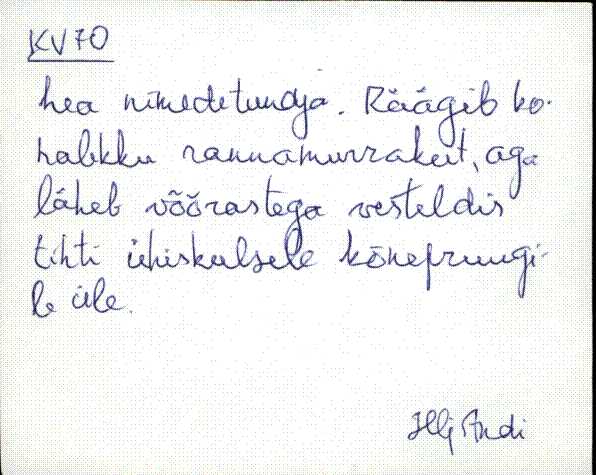 KV70
hea nimedetundja. Räägib ko-
halikku rannamurrakut, aga
läheb võõrastega vesteldis
tihti ühiskeelsele kõnepruugi-
le üle.